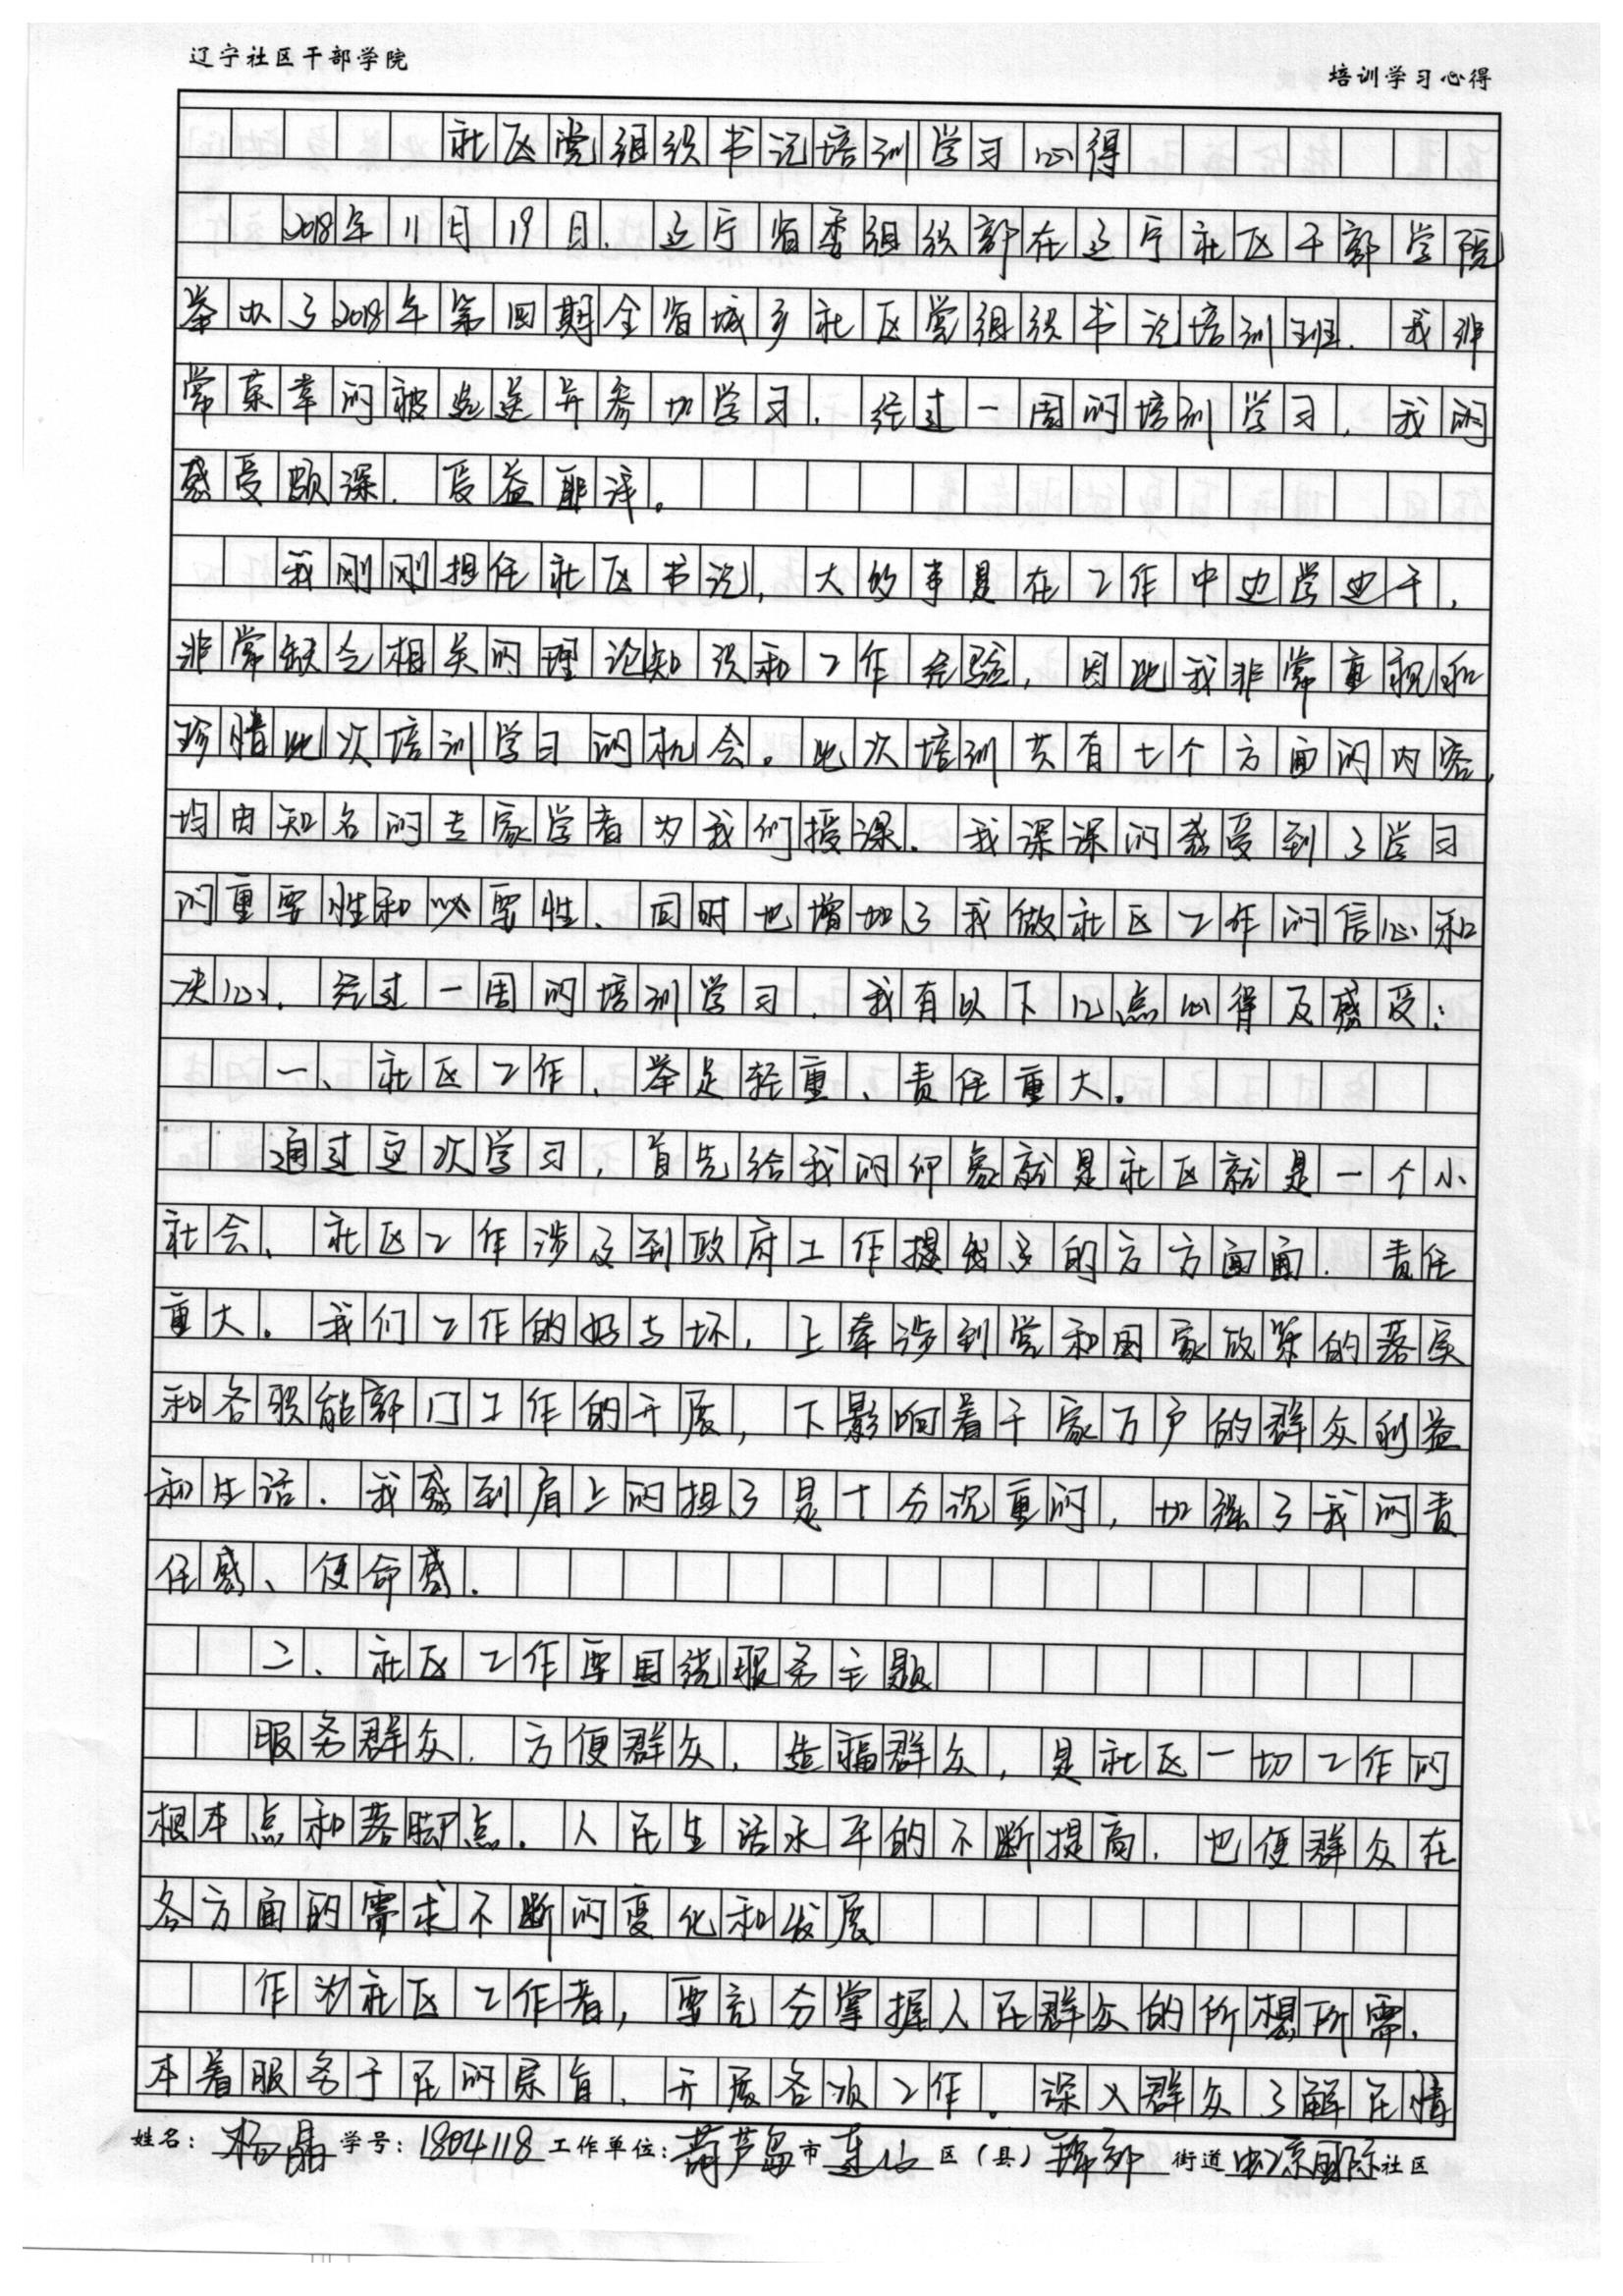 辽宁社区干部学院
培训学习心得
社区党组织书记培训学习心得
2018年11月19日，辽宁省委组织部在辽宁社区干部学院
举办了2018年第四期全省城乡社区党组织书记培训班，我非
常荣幸的被选送并参加学习，经过一周的培训学习，我的
感受颇深，受益匪浅。
我刚刚担任社区书记，大的事是在工作中边学边干，
非常缺乏相关的理论知识和工作经验，因此我非常重视和
珍惜此次培训学习的机会。此次培训共有七个方面的内容，
均由知名的专家学者为我们授课。我深深的感受到了学习
的重要性和必要性，同时也增加了我做社区工作的信心和
决心，经过一周的培训学习，我有以下几点心得及感受：
一、社区工作，举足轻重、责任重大。
通过这次学习，首先给我的印象就是社区就是一个小
社会、社区工作涉及到政府工作提到的方方面面，责任
重大。我们工作的好与坏，上牵涉到党和国家政策的落实
和各职能部门工作的开展，下影响着千家万户的群众利益
和生活，我感到肩上的担子是十分沉重的，加强了我的责
任感、使命感。
二、社区工作要围绕服务主题
服务群众，方便群众，造福群众，是社区一切工作的
根本点和落脚点。人民生活水平的不断提高，也使群众在
各方面的需求不断的变化和发展
作为社区工作者，要充分掌握人民群众的所想所需，
本着服务于民的宗旨，开展各项工作。深入群众了解民情
姓名：杨晶 学号：1804118 工作单位：葫芦岛市 连山 区（县） 街道 国际社区